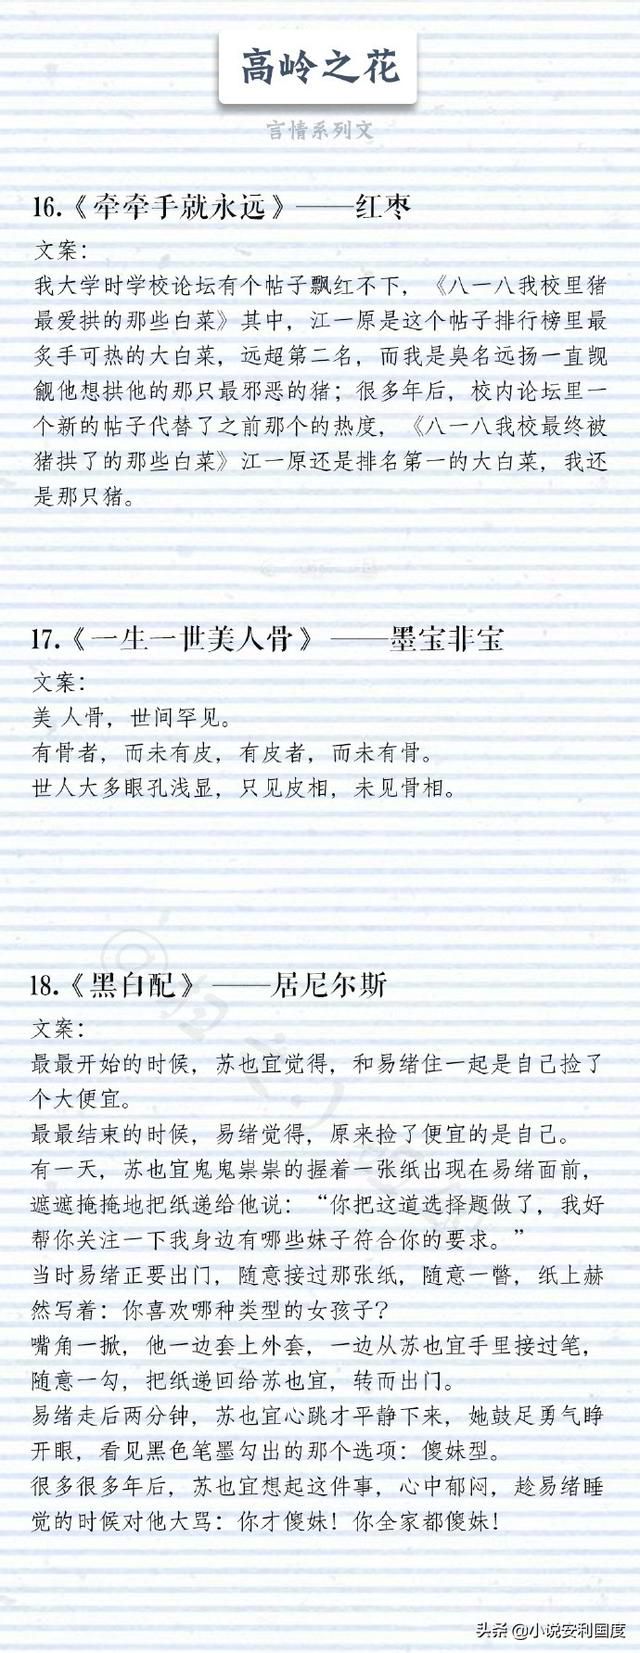 高岭之花
言情系列文
16.《牵牵手就永远》——红枣
文案：
我大学时学校论坛有个帖子飘红不下，《八一八我校里猪
最爱拱的那些白菜》其中，江一原是这个帖子排行榜里最
炙手可热的大白菜，远超第二名，而我是臭名远扬一直觊
觎他想拱他的那只最邪恶的猪；很多年后，校内论坛里一
个新的帖子代替了之前那个的热度，《八一八我校最终被
猪拱了的那些白菜》江一原还是排名第一的大白菜，我还
是那只猪。
17.《一生一世美人骨》——墨宝非宝
文案：
美 人骨，世间罕见。
有骨者，而未有皮，有皮者，而未有骨。
世人大多眼孔浅显，只见皮相，未见骨相。
18.《黑白配》——居尼尔斯
文案：
最最开始的时候，苏也宜觉得，和易绪住一起是自己捡了
个大便宜。
最最结束的时候，易绪觉得，原来捡了便宜的是自己。
有一天，苏也宜鬼鬼祟祟的握着一张纸出现在易绪面前，
遮遮掩掩地把纸递给他说：“你把这道选择题做了，我好
帮你关注一下我身边有哪些妹子符合你的要求。”
当时易绪正要出门，随意接过那张纸，随意一瞥，纸上赫
然写着：你喜欢哪种类型的女孩子？
嘴角一掀，他一边套上外套，一边从苏也宜手里接过笔，
随意一勾，把纸递回给苏也宜，转而出门。
易绪走后两分钟，苏也宜心跳才平静下来，她鼓足勇气睁
开眼，看见黑色笔墨勾出的那个选项：傻妹型。
很多很多年后，苏也宜想起这件事，心中郁闷，趁易绪睡
觉的时候对他大骂：你才傻妹！你全家都傻妹！
头条 @小说安利国度